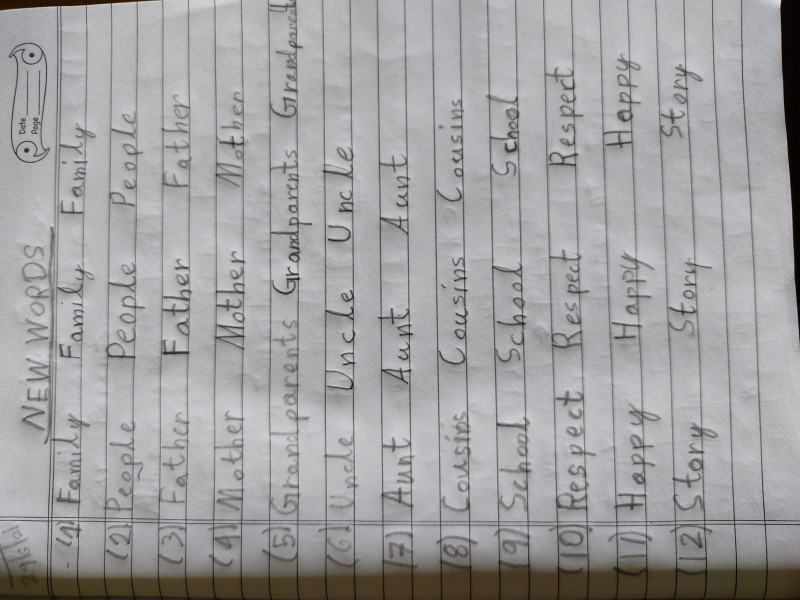 Date
Page
NEW WORDS
(1) Family Family Family
(2) People People People
(3) Father Father Father
(4) Mother Mother Mother
(5) Grandparents Grandparents Grandparents
(6) Uncle Uncle Uncle
(7) Aunt Aunt Aunt
(8) Cousins Cousins Cousins
(9) School School School
(10) Respect Respect Respect
(11) Happy Happy Happy
(12) Story Story Story